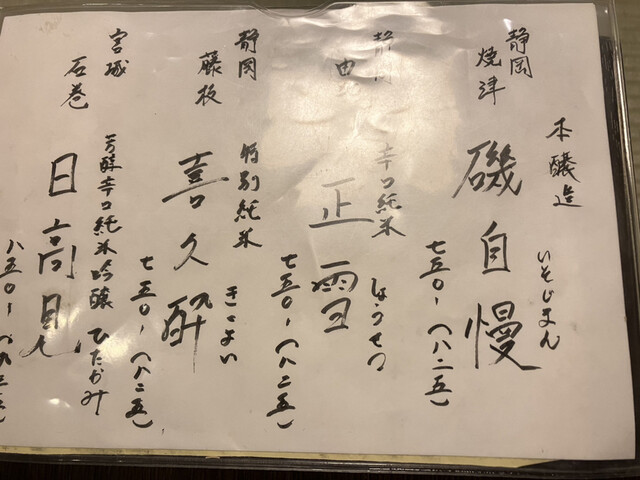 本醸造
静岡
焼津
磯自慢
いそじまん
七五〇ー（八二五）
静岡
由
辛口純米
正雪
しょうせつ
七五〇ー（八二五）
静岡
藤枝
特別純米
喜久酔
きくよい
七五〇ー（八二五）
宮城
石巻
芳醇辛口純米吟醸
日高見
ひたかみ
八五〇ー（九三五）